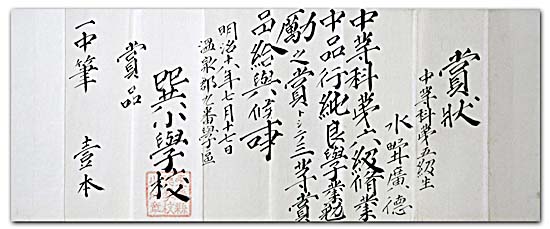 賞状
中等科第五級生
水野廣徳
中等科第六級脩業
中品行純良學業勉
勵之賞トシテ三等賞
品給與候事
明治十年七月十七日
温泉郡第番學區
巽小學校
賞品
一中筆 壹本